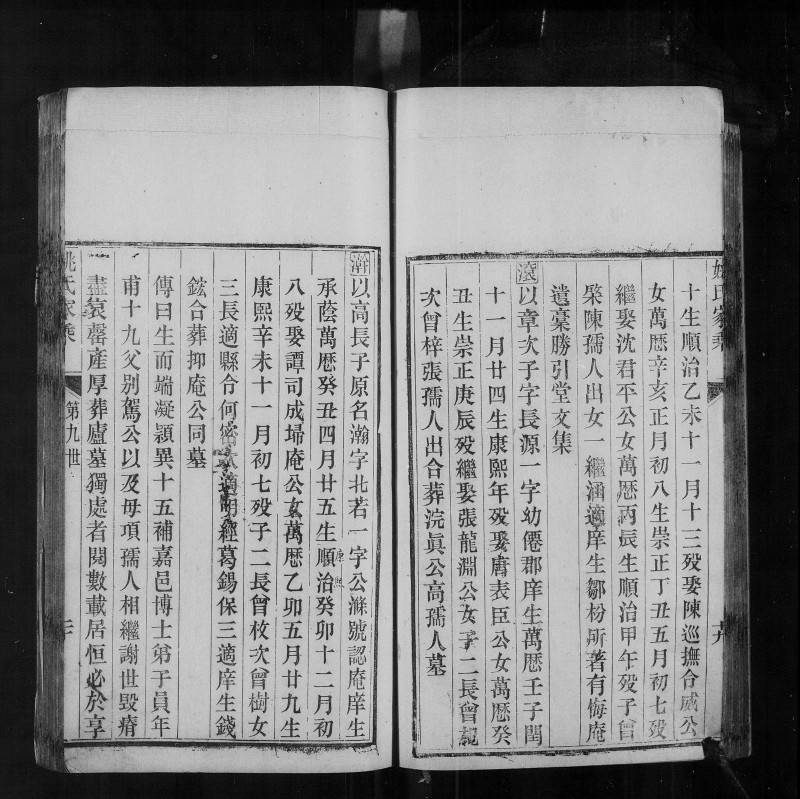 姚氏家乘
十生順治乙未十一月十三歿娶陳巡撫合威公
女萬厯辛亥正月初八生崇正丁丑五月初七歿
繼娶沈君平公女萬厯丙辰生順治甲午歿子曾
棨陳孺人出女一繼涵適庠生鄒枌所著有悔庵
遺稾勝引堂文集
滾以章次子字長源一字幼僊郡庠生萬厯壬子閏
十一月廿四生康熙年歿娶膚表臣公女萬厯癸
丑生崇正庚辰歿繼娶張龍淵公女子二長曾
次曾梓張孺人出合葬浣眞公高孺人墓
澣以高長子原名瀚字北若一字公滌號認庵庠生
承蔭萬厯癸丑四月廿五生順治癸卯十二月初
康熙
八歿娶譚司成埽庵公女萬厯乙卯五月廿九生
康熙辛未十一月初七歿子二長曾枚次曾樹女
三長適縣令何 適明經葛錫保三適庠生錢
鋐合葬抑庵公同墓
傳曰生而端凝穎異十五補嘉邑博士弟子員年
甫十九父別駕公以及母項孺人相繼謝世毀瘠
盡䘮罄產厚葬廬墓獨處者閱數載居恒必於享
姚氏家乘
第九世